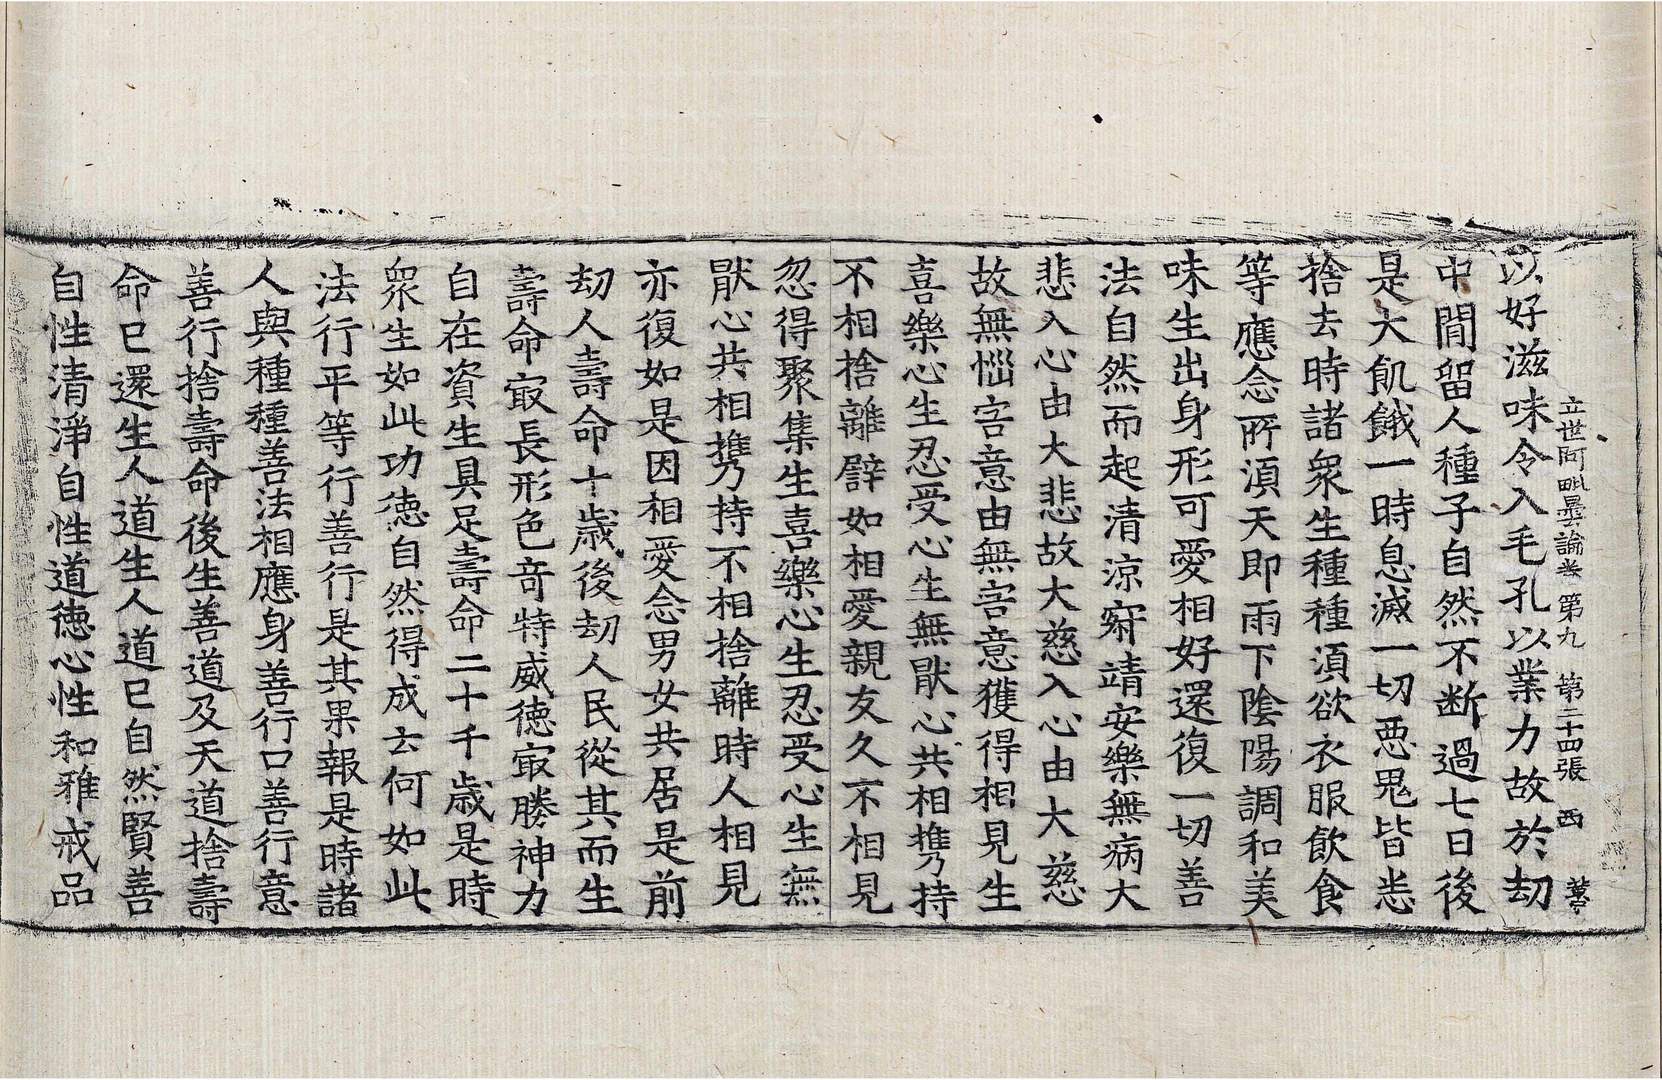 立世阿毗曇論卷第九 第二十四張 西
以好滋味令入毛孔以業力故於劫
中間留人種子自然不断過七日後
是大飢餓一時息滅一切悪鬼皆悉
捨去時諸衆生種種湏欲衣服飲食
等應念所湏天即雨下陰陽調和美
味生出身形可愛相好還復一切善
法自然而起清涼寂靖安樂無病大
悲入心由大悲故大慈入心由大慈
故無惱害意由無害意獲得相見生
喜樂心生忍受心生無猒心共相携持
不相捨離譬如相愛親友久不相見
忽得聚集生喜樂心生忍受心生無
猒心共相携持不相捨離時人相見
亦復如是因相愛念男女共居是前
劫人壽命十歲後劫人民從其而生
壽命㝡長形色竒特威徳㝡勝神力
自在資生具足壽命二十千歲是時
衆生如此功徳自然得成云何如此
法行平等行善行是其果報是時諸
人與種種善法相應身善行口善行意
善行捨壽命後生善道及天道捨壽
命已還生人道生人道已自然賢善
自性清淨自性道徳心性和雅戒品